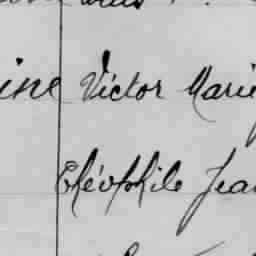 ine Victor Marie
Théophile Jean